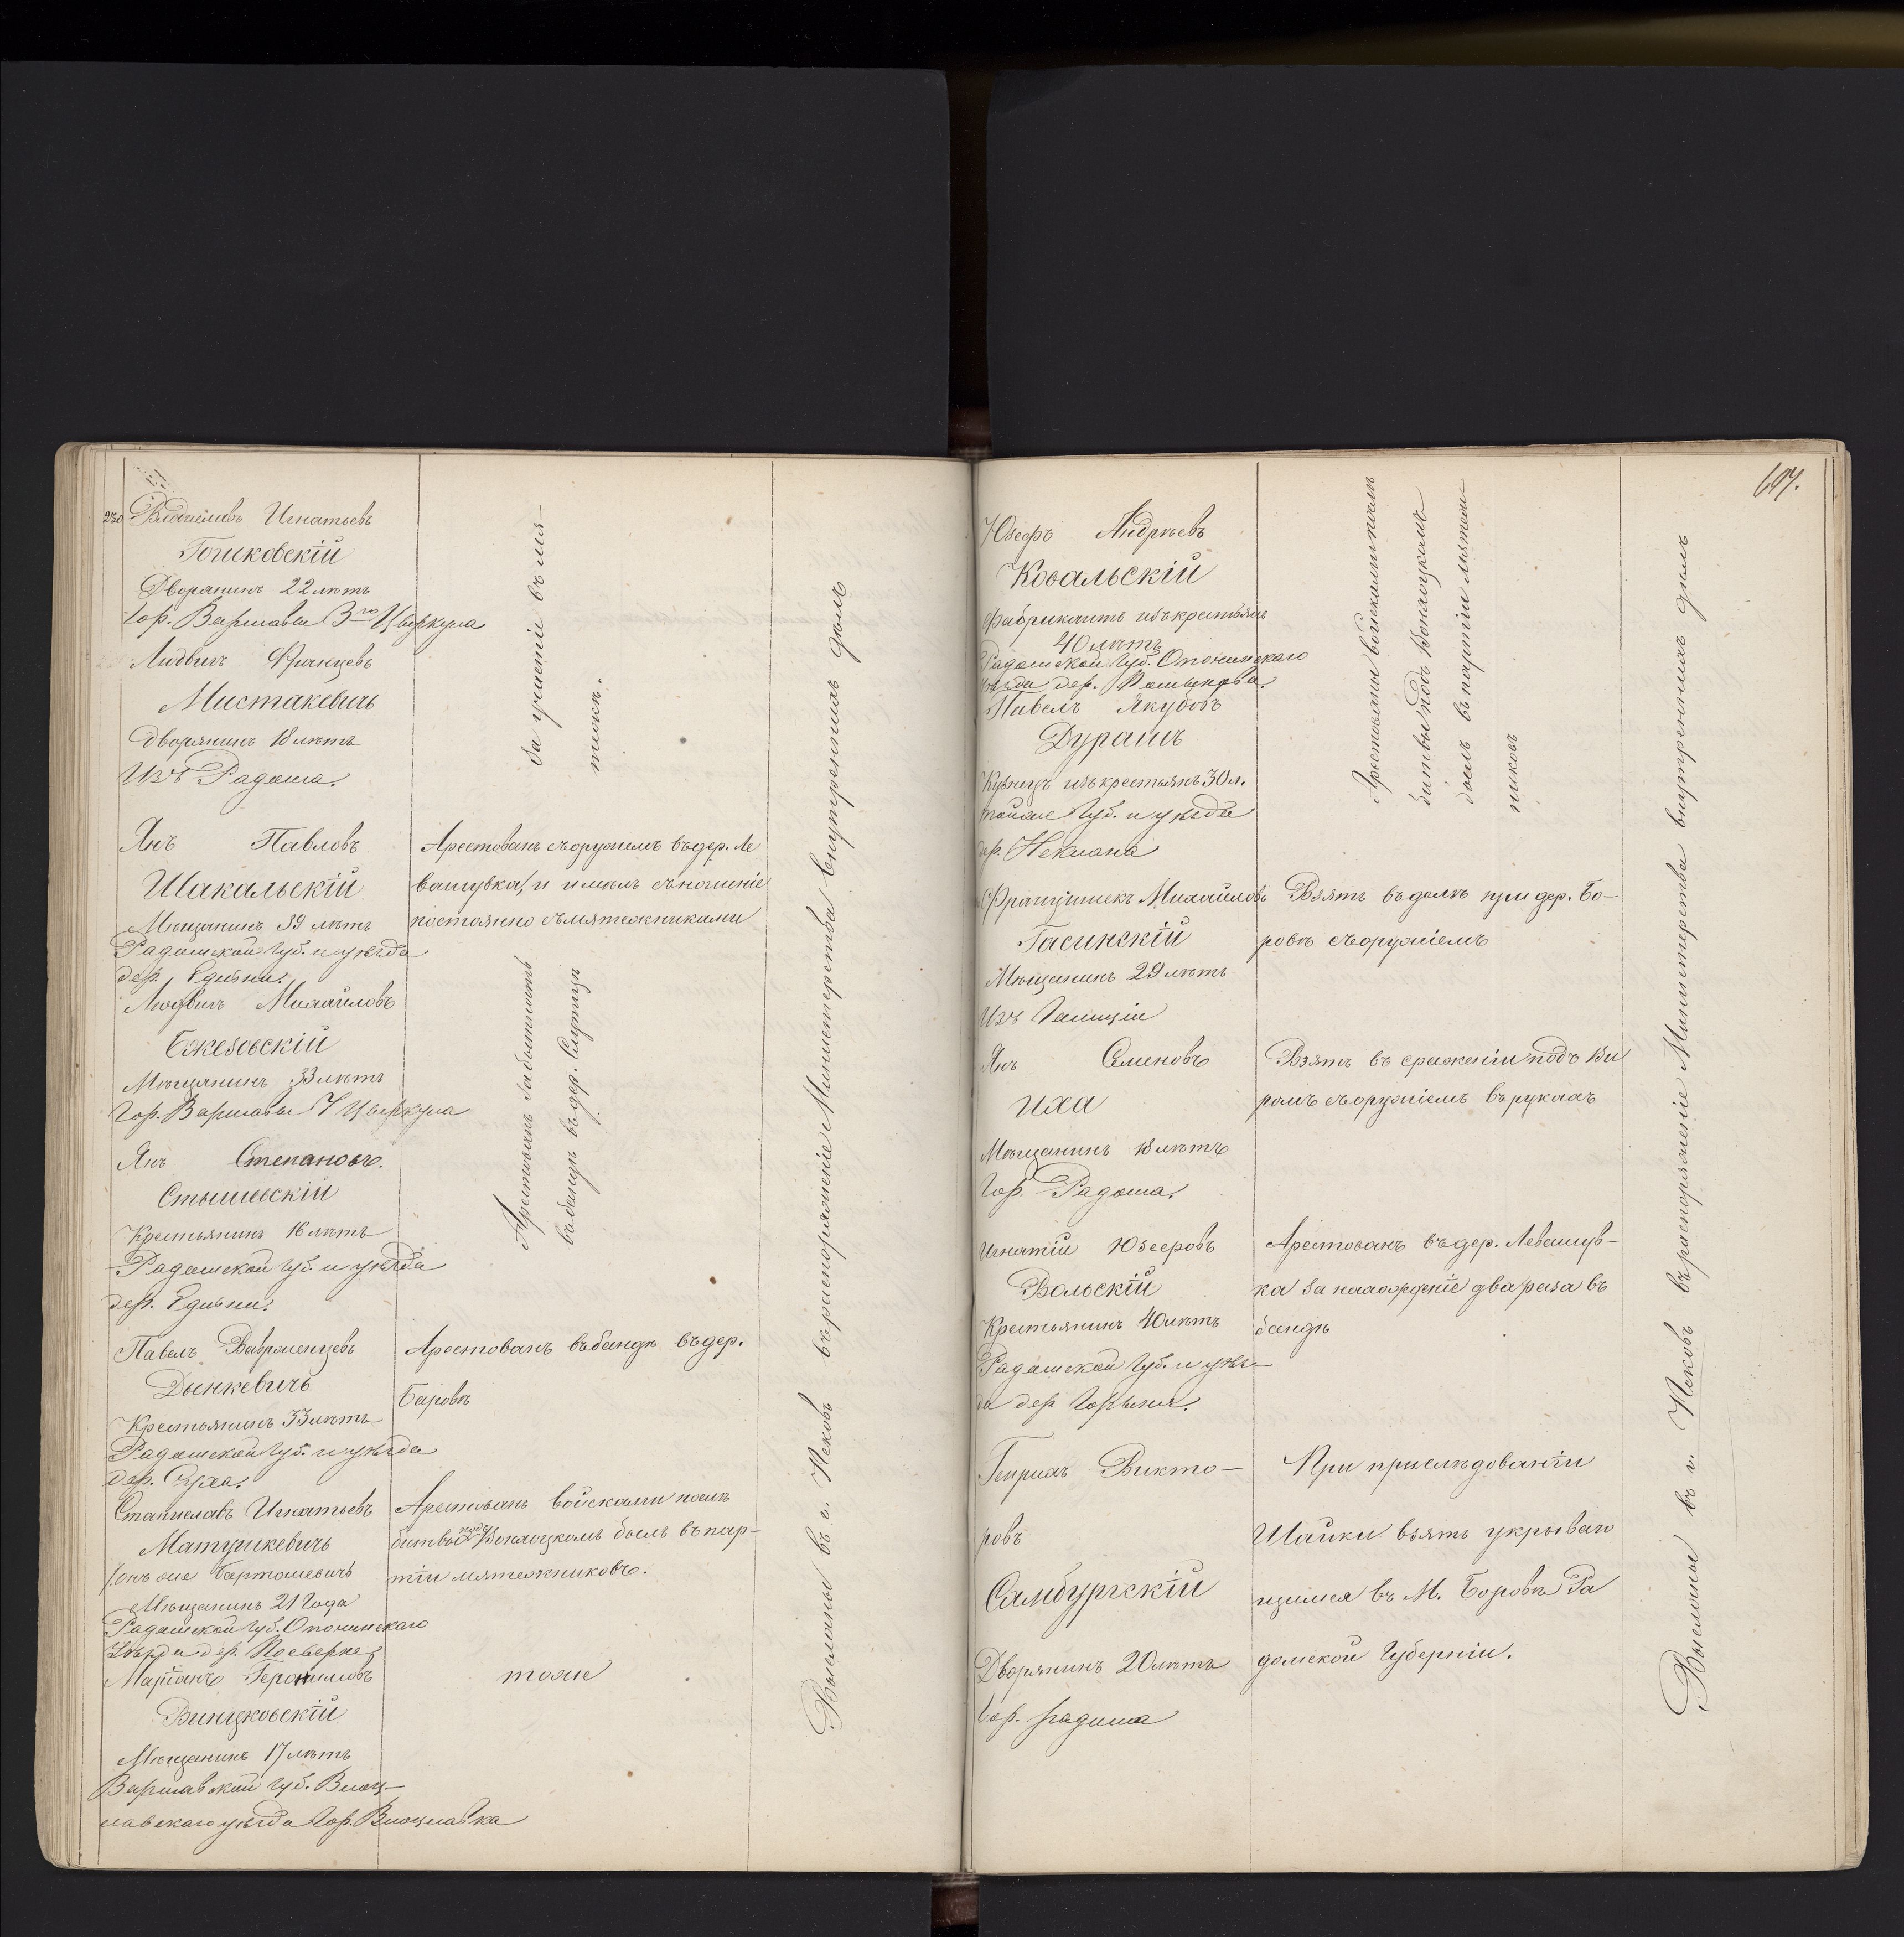 230 Владиславъ Игнатьевъ
Гошковскій
Дворянинъ 22 лѣтъ
Гор. Варшавы 3го Циркула
Людвигъ Францевъ
Мистакевичъ
Дворянинъ 18 лѣтъ
Изъ Радома.
За участіе въ мя-
тежѣ.
Янъ Павловъ
Шакальскій
Мѣщанинъ 39 лѣтъ
Радомской Губ. и уѣзда
дер. Едльни.
Арестованъ съ оружіемъ въ дер. Ле
вашувка, и имѣлъ сношеніе
постоянно съ мятежниками
Людвигъ Михайловъ
Бжезовскій
Мѣщанинъ 33 лѣтъ
Гор. Варшавы 7 Циркула
Янъ Степановъ.
Стышевскій
Крестьянинъ 16 лѣтъ
Радомской Губ. и уѣзда
дер. Едльни.
Арестованъ за бытность
въ бандѣ въ дер.
Павелъ Ваврженцевъ
Дынкевичъ
Крестьянинъ 33 лѣтъ
Радомской Губ. и уѣзда
дер.
Арестованъ въ бандѣ въ дер.
Боровѣ
Станиславъ Игнатьевъ
Матушкевичъ
онъ же Бартошевичъ
Мѣщанинъ 21 Года
Радомской Губ. Опочинскаго
Уѣзда дер.
Арестованъ войсками послѣ
битвы подъ Вонхоцкомъ былъ въ пар-
тіи мятежниковъ.
Маріанъ
Винцковскій
Мѣщанинъ 17 лѣтъ
Варшавской Губ. Влоц-
лавскаго уѣзда Гор. Влоцлавка
тоже
Высланы въ г. Псковъ въ распоряженіе Министерства внутреннихъ дѣлъ
607.
Юзефъ Андреевъ
Ковальскій
Фабрикантъ изъ крестьянъ
40 лѣтъ
Радомской Губ. Опочинскаго
уѣзда дер.
Павелъ Якубовъ
Дурашъ
Кузнецъ изъ крестьянъ 30 л.
той же Губ. и уѣзда
дер. Неклана
Арестованы войсками послѣ
битвы подъ Вонхоцкомъ
былъ въ партіи мятеж-
никовъ
Францишекъ Михайловъ
Гасинскій
Мѣщанинъ 29 лѣтъ
Изъ Галиціи
Взятъ въ дѣлѣ при дер. Бо-
ровѣ съ оружіемъ
Янъ Семеновъ
Иха
Мѣщанинъ 18 лѣтъ
Гор. Радома.
Взятъ въ сраженіи подъ
съ оружіемъ въ рукахъ
Игнатій Юзефовъ
Вольскій
Крестьянинъ 40 лѣтъ
Радомской Губ. и уѣз-
да дер.
Арестованъ въ дер. Левашув-
ка за нахожденіе два раза въ
бандѣ
Генрихъ Викто-
ровъ
Самбургскій
Дворянинъ 20 лѣтъ
Гор. Радома
При преслѣдованіи
Шайки взятъ укрываю
щимся въ М. Боровѣ Ра
домской Губерніи.
Высланы въ г. Псковъ въ распоряженіе Министерства внутреннихъ дѣлъ